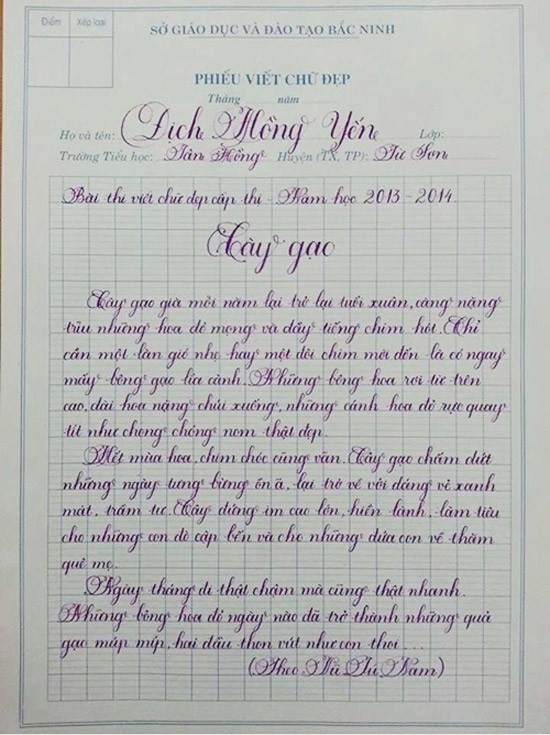 Điểm Xếp loại
SỞ GIÁO DỤC VÀ ĐÀO TẠO BẮC NINH
PHIẾU VIẾT CHỮ ĐẸP
Tháng năm
Họ và tên: Dịch Hồng Yến Lớp:
Trường Tiểu học: Tân Hồng Huyện (TX, TP): Từ Sơn
Bài thi viết chữ đẹp cấp thị - Năm học 2013 - 2014
Cây gạo
Cây gạo già mỗi năm lại trở lại tuổi xuân, càng nặng
trĩu những hoa đỏ mọng và đầy tiếng chim hót. Chỉ
cần một làn gió nhẹ hay một đôi chim mới đến là có ngay
mấy bông gạo lìa cành. Những bông hoa rơi từ trên
cao, đài hoa nặng chúi xuống, những cánh hoa đỏ rực quay
tít như chong chóng nom thật đẹp.
Hết mùa hoa, chim chóc cũng vãn. Cây gạo chấm dứt
những ngày tưng bừng ồn ã, lại trở về với dáng vẻ xanh
mát, trầm tư. Cây đứng im cao lớn, hiền lành, làm tiêu
cho những con đò cập bến và cho những đứa con về thăm
quê mẹ.
Ngày tháng đi thật chậm mà cũng thật nhanh.
Những bông hoa đỏ ngày nào đã trở thành những quả
gạo múp míp, hai đầu thon vút như con thoi...
(Theo Vũ Tú Nam)